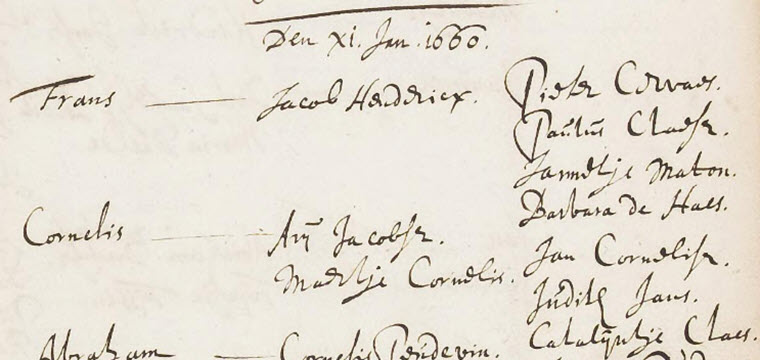 Den xi. Jan. 1660.
Frans — Jacob Henderickx. Pieter Cervaes.
Paulus Claesz.
Jannetje Maton.
Barbara de Haes.
Cornelis — Arÿ Jacobsz. Jan Cornelisz.
Maertje Cornelis. Judith Jans.
Abraham — Cornelis Pendevin. Catalÿntje Claes.